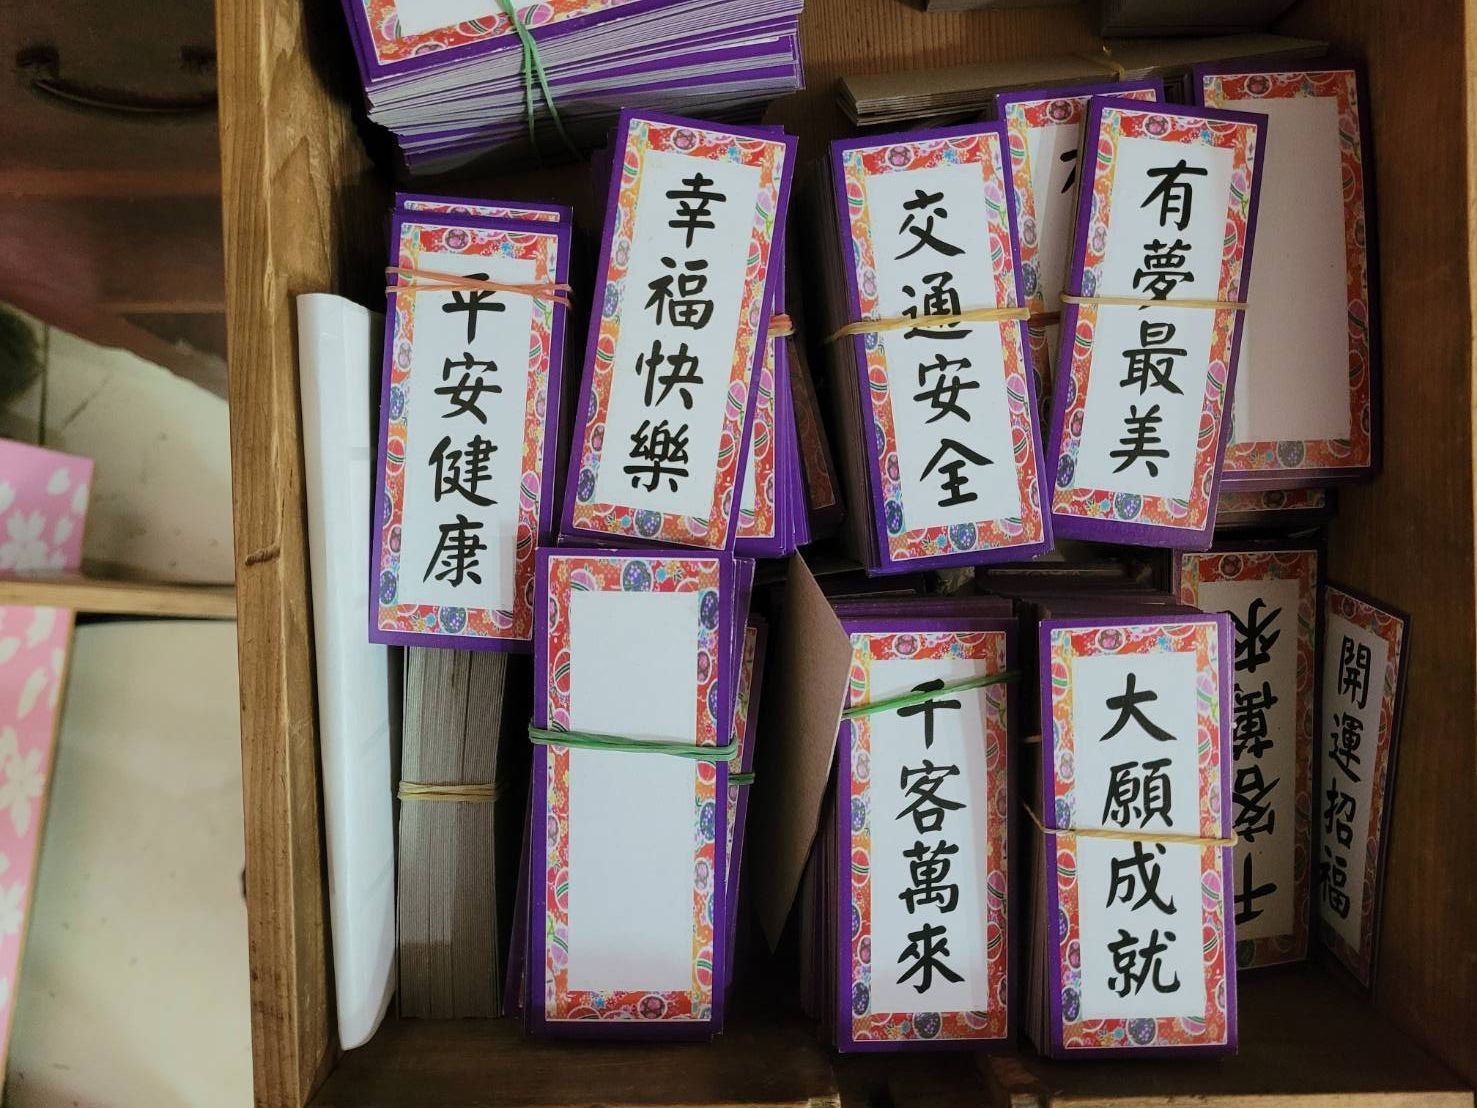 平安健康
幸福快樂
交通安全
有夢最美
千客萬來
大願成就
千客萬來
開運招福